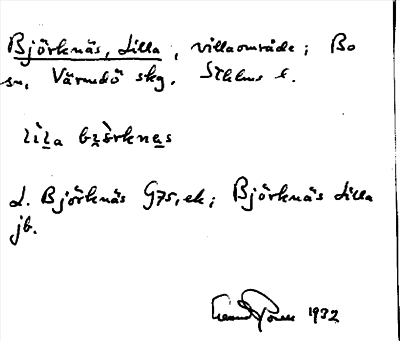 Björknäs, Lilla, villaområde; Bo
sn, Värmdö skg. Sthlms l.
lìl̠a bi̠örkne̠s
L. Björknäs G75, ek; Björknäs Lilla
jb.
1932